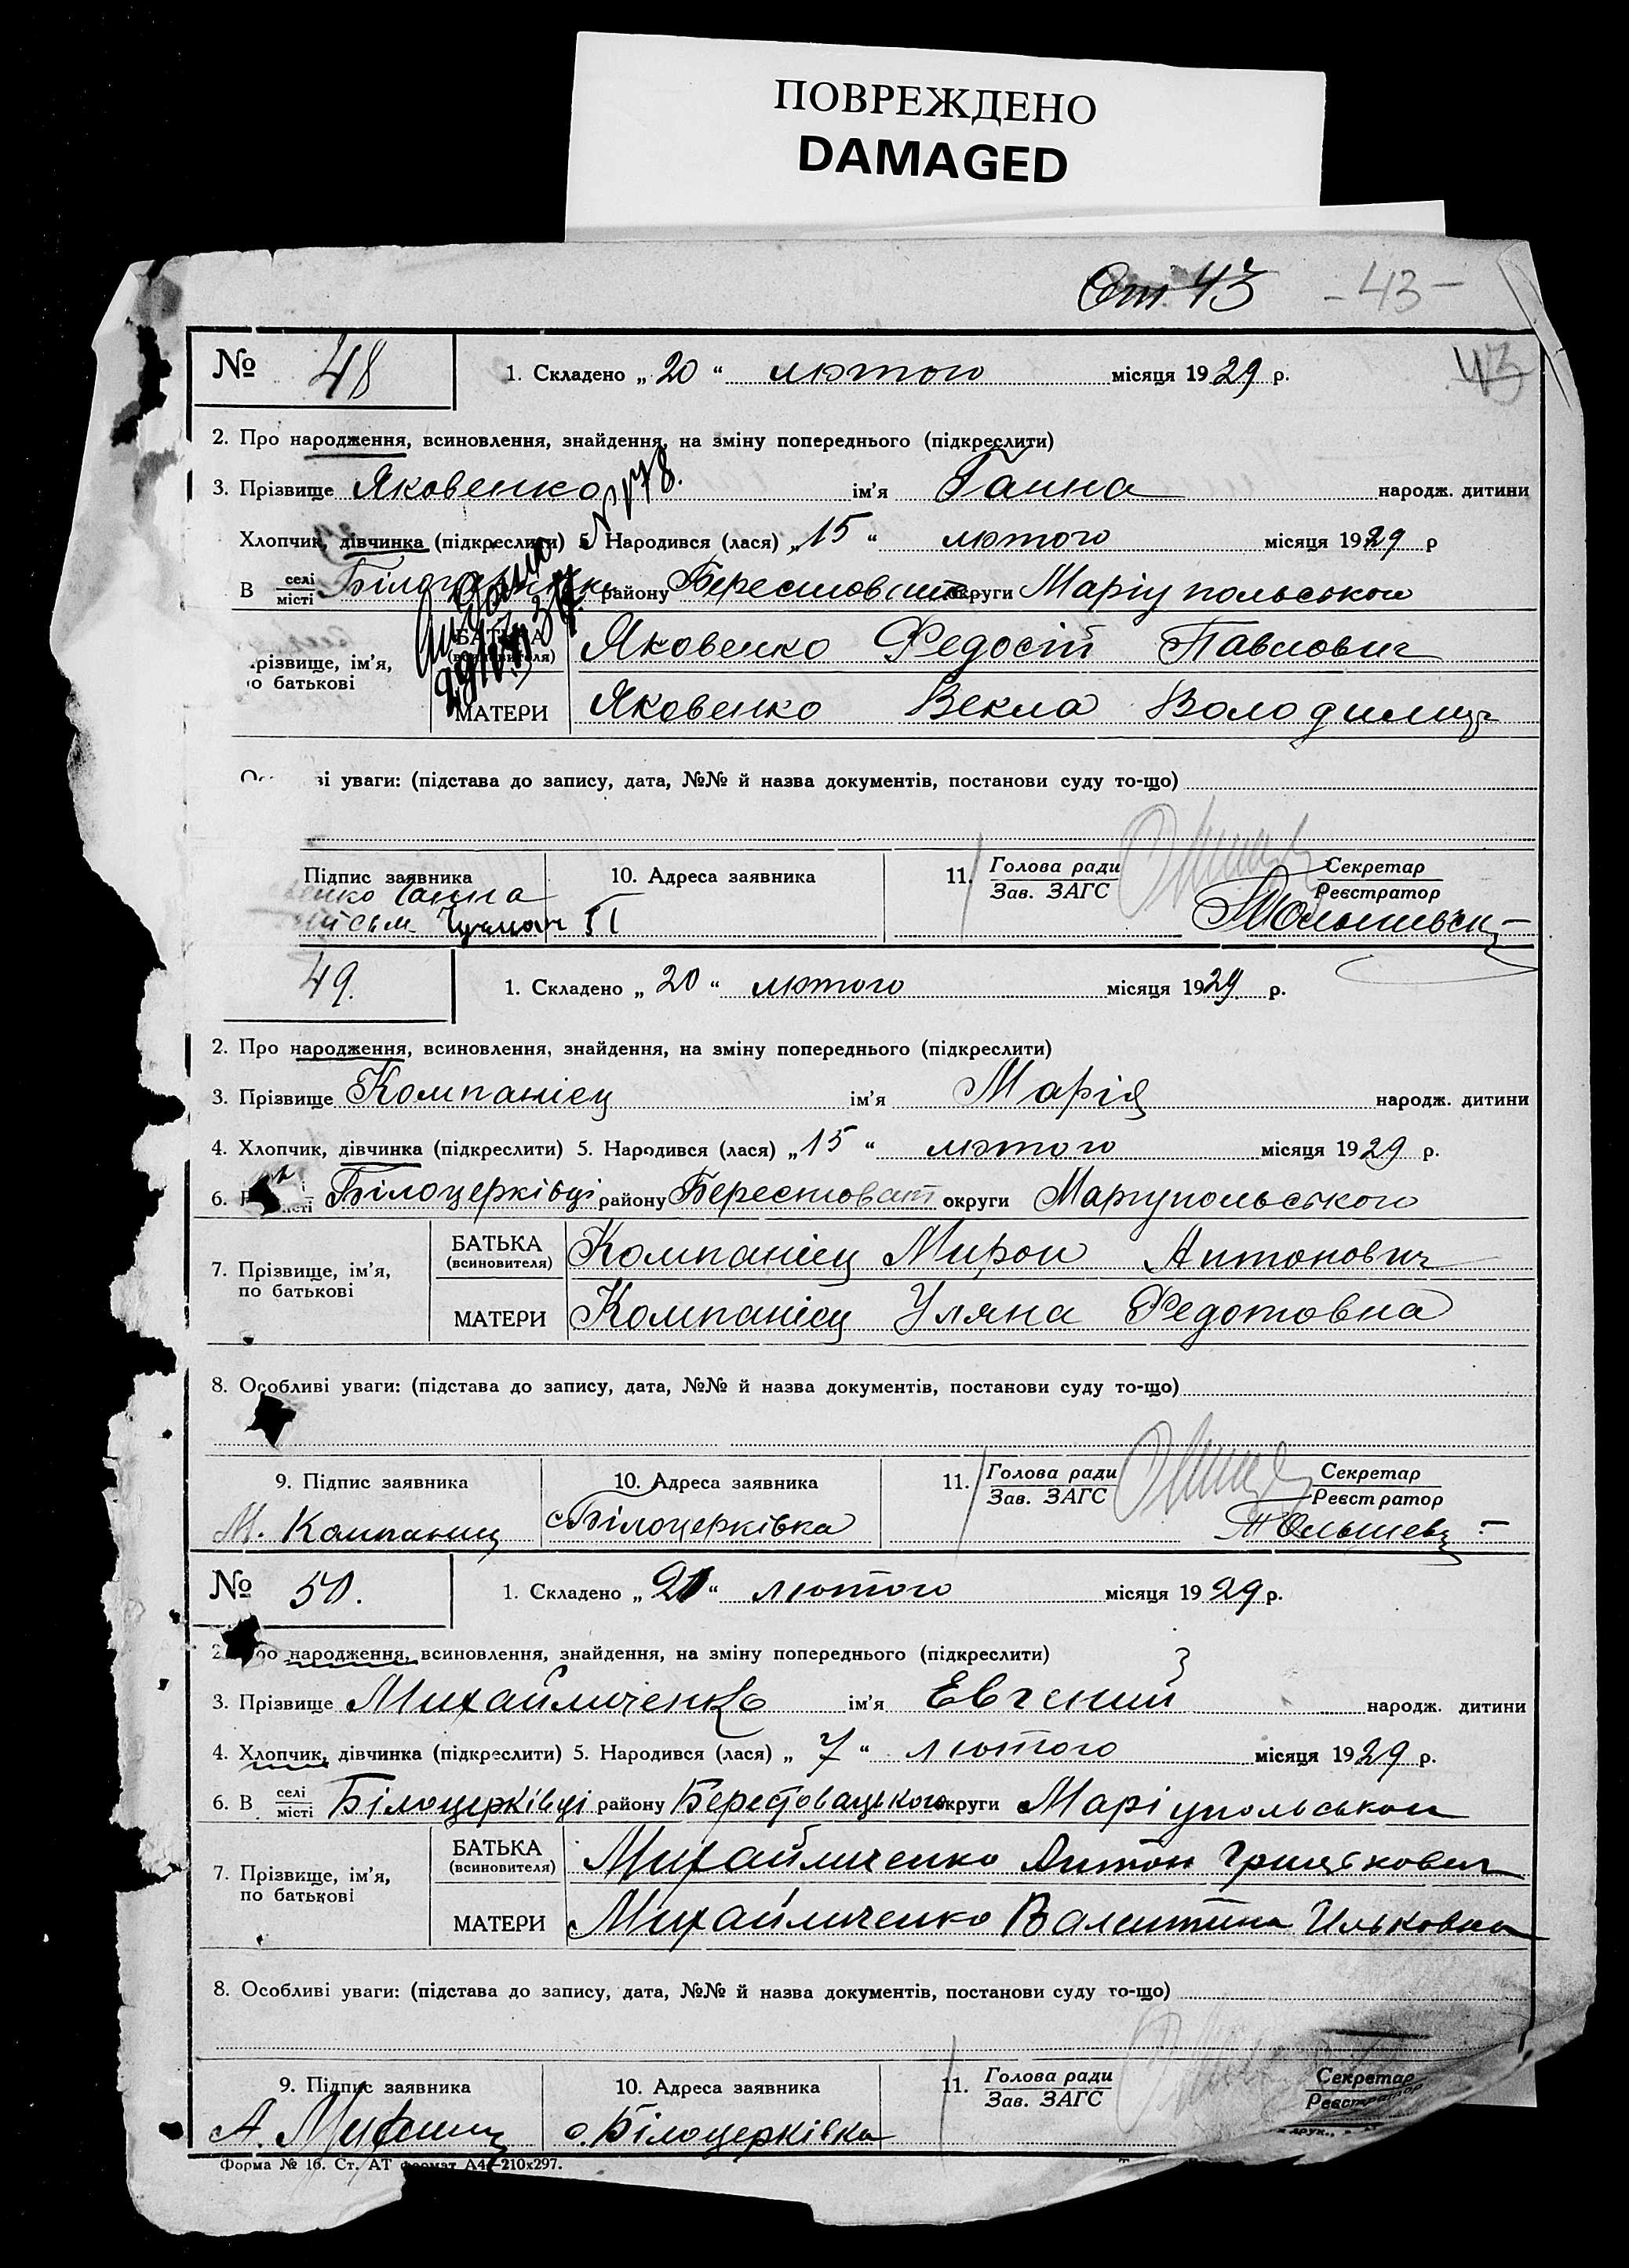 ПОВРЕЖДЕНО
DAMAGED
Ст 43 - 43 -
43
№ 48 1. Складено „ 20 “ лютого місяця 1929 р.
2. Про народження, всиновлення, знайдення, на зміну попереднього (підкреслити)
3. Прізвище Яковенко ім'я Ганна народж. дитини
Хлопчик, дівчинка (підкреслити) 5. Народився (лася) „ 15 “ лютого місяця 1929 р
В селі місті району Берестов округи Маріупольського
БАТЬКА (всиновителя) Яковенко Федосій Павлович
різвище, ім'я,
о батькові
МАТЕРИ Яковенко Векла Володимир
і уваги: (підстава до запису, дата, №№ й назва документів, постанови суду то-що)
Підпис заявника 10. Адреса заявника 11. Голова ради Зав. ЗАГС Секретар Реєстратор
енко Ганна
49. 1. Складено „ 20 “ лютого місяця 1929 р.
2. Про народження, всиновлення, знайдення, на зміну попереднього (підкреслити)
3. Прізвище Компанієц ім'я Марія народж. дитини
4. Хлопчик, дівчинка (підкреслити) 5. Народився (лася) „ 15 “ лютого місяця 1929 р.
6. Білоцерківці району Берестоват округи Маріупольського
БАТЬКА (всиновителя) Компанієц Мирон Антонович
7. Прізвище, ім'я,
по батькові
МАТЕРИ Компанієц Уляна Федотовна
8. Особливі уваги: (підстава до запису, дата, №№ й назва документів, постанови суду то-що)
9. Підпис заявника 10. Адреса заявника 11. Голова ради Зав. ЗАГС Секретар Реєстратор
М. Компаниец с Білоцерківка
№ 50. 1. Складено „ 21 “ лютого місяця 1929 р.
2. Про народження, всиновлення, знайдення, на зміну попереднього (підкреслити)
3. Прізвище Михайличенко ім'я Евгений народж. дитини
4. Хлопчик, дівчинка (підкреслити) 5. Народився (лася) „ 7 “ лютого місяця 1929 р.
6. В селі місті Білоцерківці району Берестовацького округи Маріупольської
БАТЬКА (всиновителя) Михайличенко Антон Грицькович
7. Прізвище, ім'я,
по батькові
МАТЕРИ Михайличенко Валентина Ильковна
8. Особливі уваги: (підстава до запису, дата, №№ й назва документів, постанови суду то-що)
9. Підпис заявника 10. Адреса заявника 11. Голова ради Зав. ЗАГС Секретар Реєстратор
с. Білоцерківка
Форма № 16. Ст. АТ формат А4—210х297.